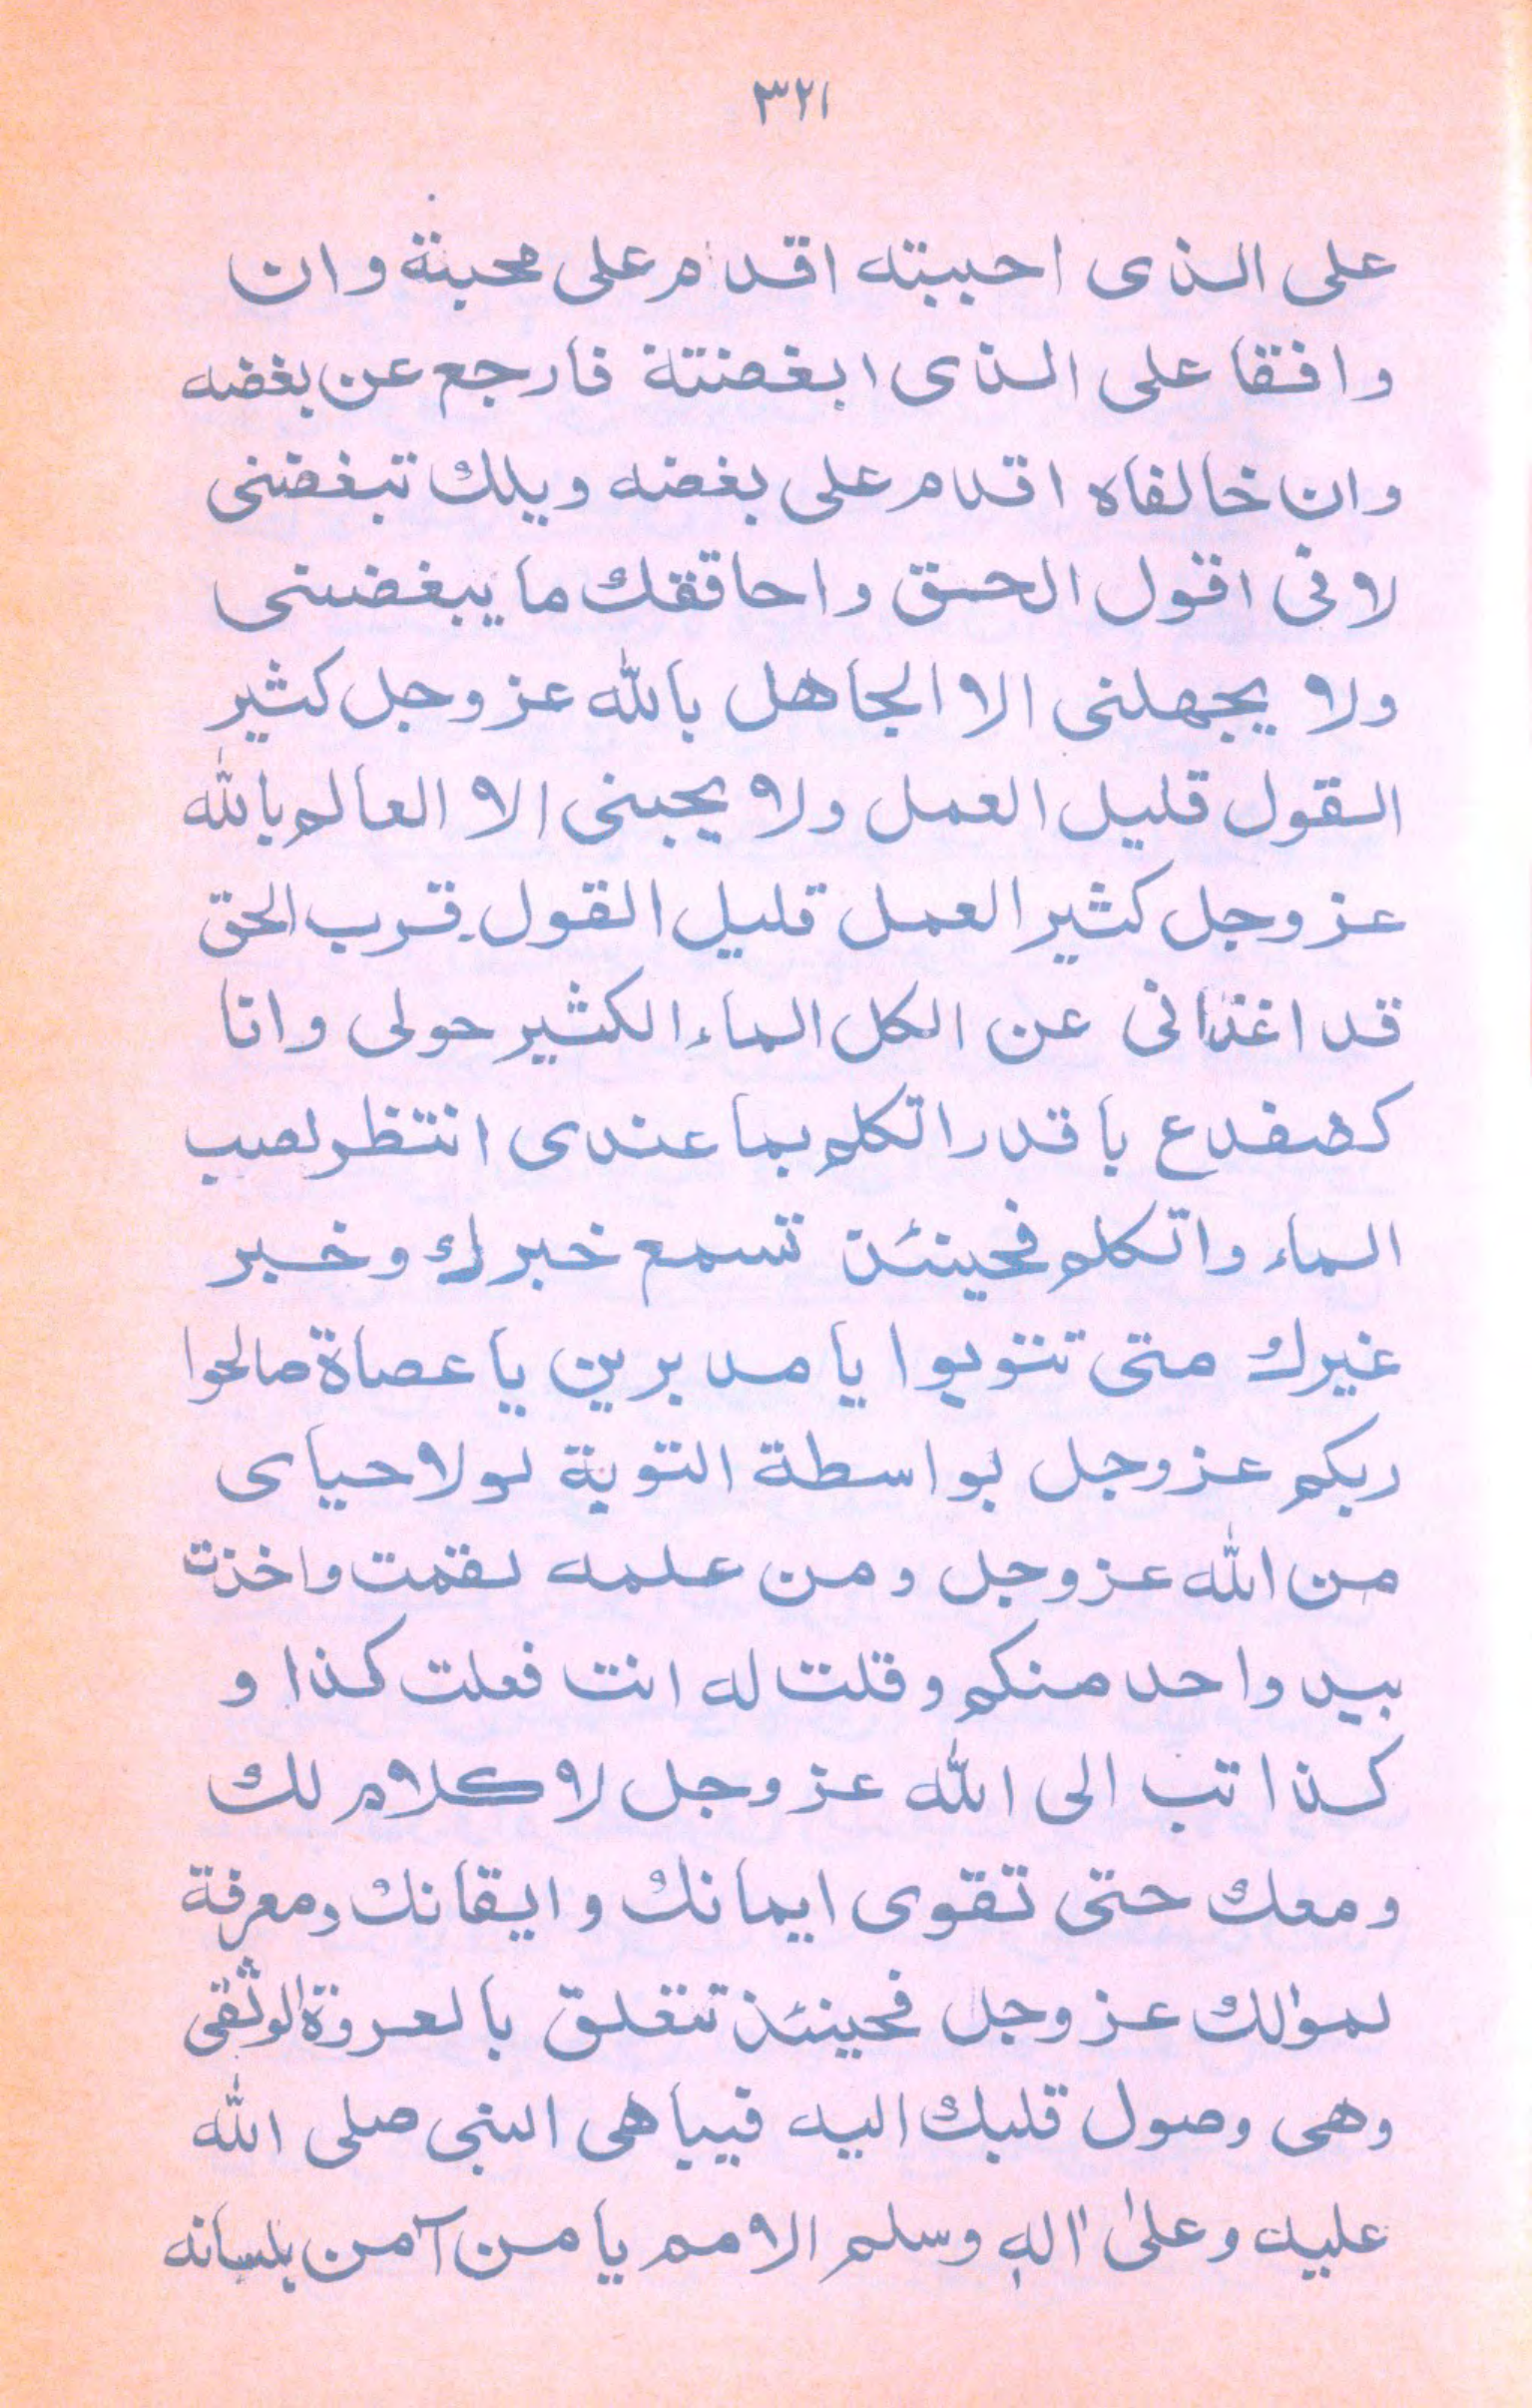 ٣٢١
على الذى احببته اقدام على محبتة وان
وافقا على الذى ابغضتة فارجع عن بغضه
وان خالفاه اقدام على بغضه ويلك تبغضنى
لانى اقول الحق واحاققك ما يبغضنى
ولا يجهلنى الا الجاهل بالله عز وجل كثير
القول قليل العمل ولا يحبنى الا العالم بالله
عز وجل كثير العمل قليل القول قرب الحق
قد اغنانى عن الكل الماء الكثير حولى وانا
كضفدع با قدر اتكلم بما عندى انتظر لصب
الماء واتكلم فحينئذ تسمع خبرك وخبر
غيرك متى تتوبوا يا مدبرين يا عصاة صالحوا
ربكم عز وجل بواسطة التوبة لولا حياى
من الله عز وجل ومن علمه لقمت واخذت
بيد واحد منكم وقلت له انت فعلت كذا و
كذا تب الى الله عز وجل لا كلام لك
ومعك حتى تقوى ايمانك وايقانك ومعرفة
لموالك عز وجل فحينئذ تتعلق بالعروة الوثقى
وهى وصول قلبك اليه فيباهى النبى صلى الله
عليه وعلىٰ اٰلهٖ وسلم الامم يا من آمن بلسانه